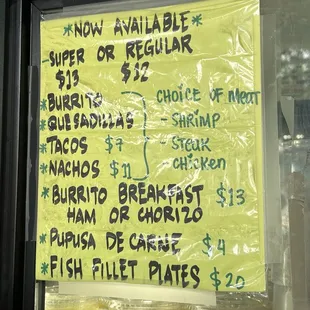 *NOW AVAILABLE*
-SUPER OR REGULAR
$13 $12
*BURRITO
*QUESADILLAS
*TACOS $7
*NACHOS $11
CHOICE OF MEAT
- SHRIMP
- STEUK
- CHICKEN
*BURRITO BREAKFAST $13
HAM OR CHORIZO
*PUPUSA DE CARNE $4
*FISH FILLET PLATES $20